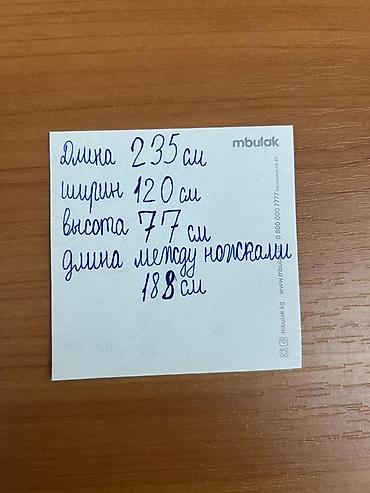 mbulak
Длина 235 см
ширин 120 см
высота 77 см
длина между ножками
188 см
0 800 000 7777
www.mbulak
mbulak.kg